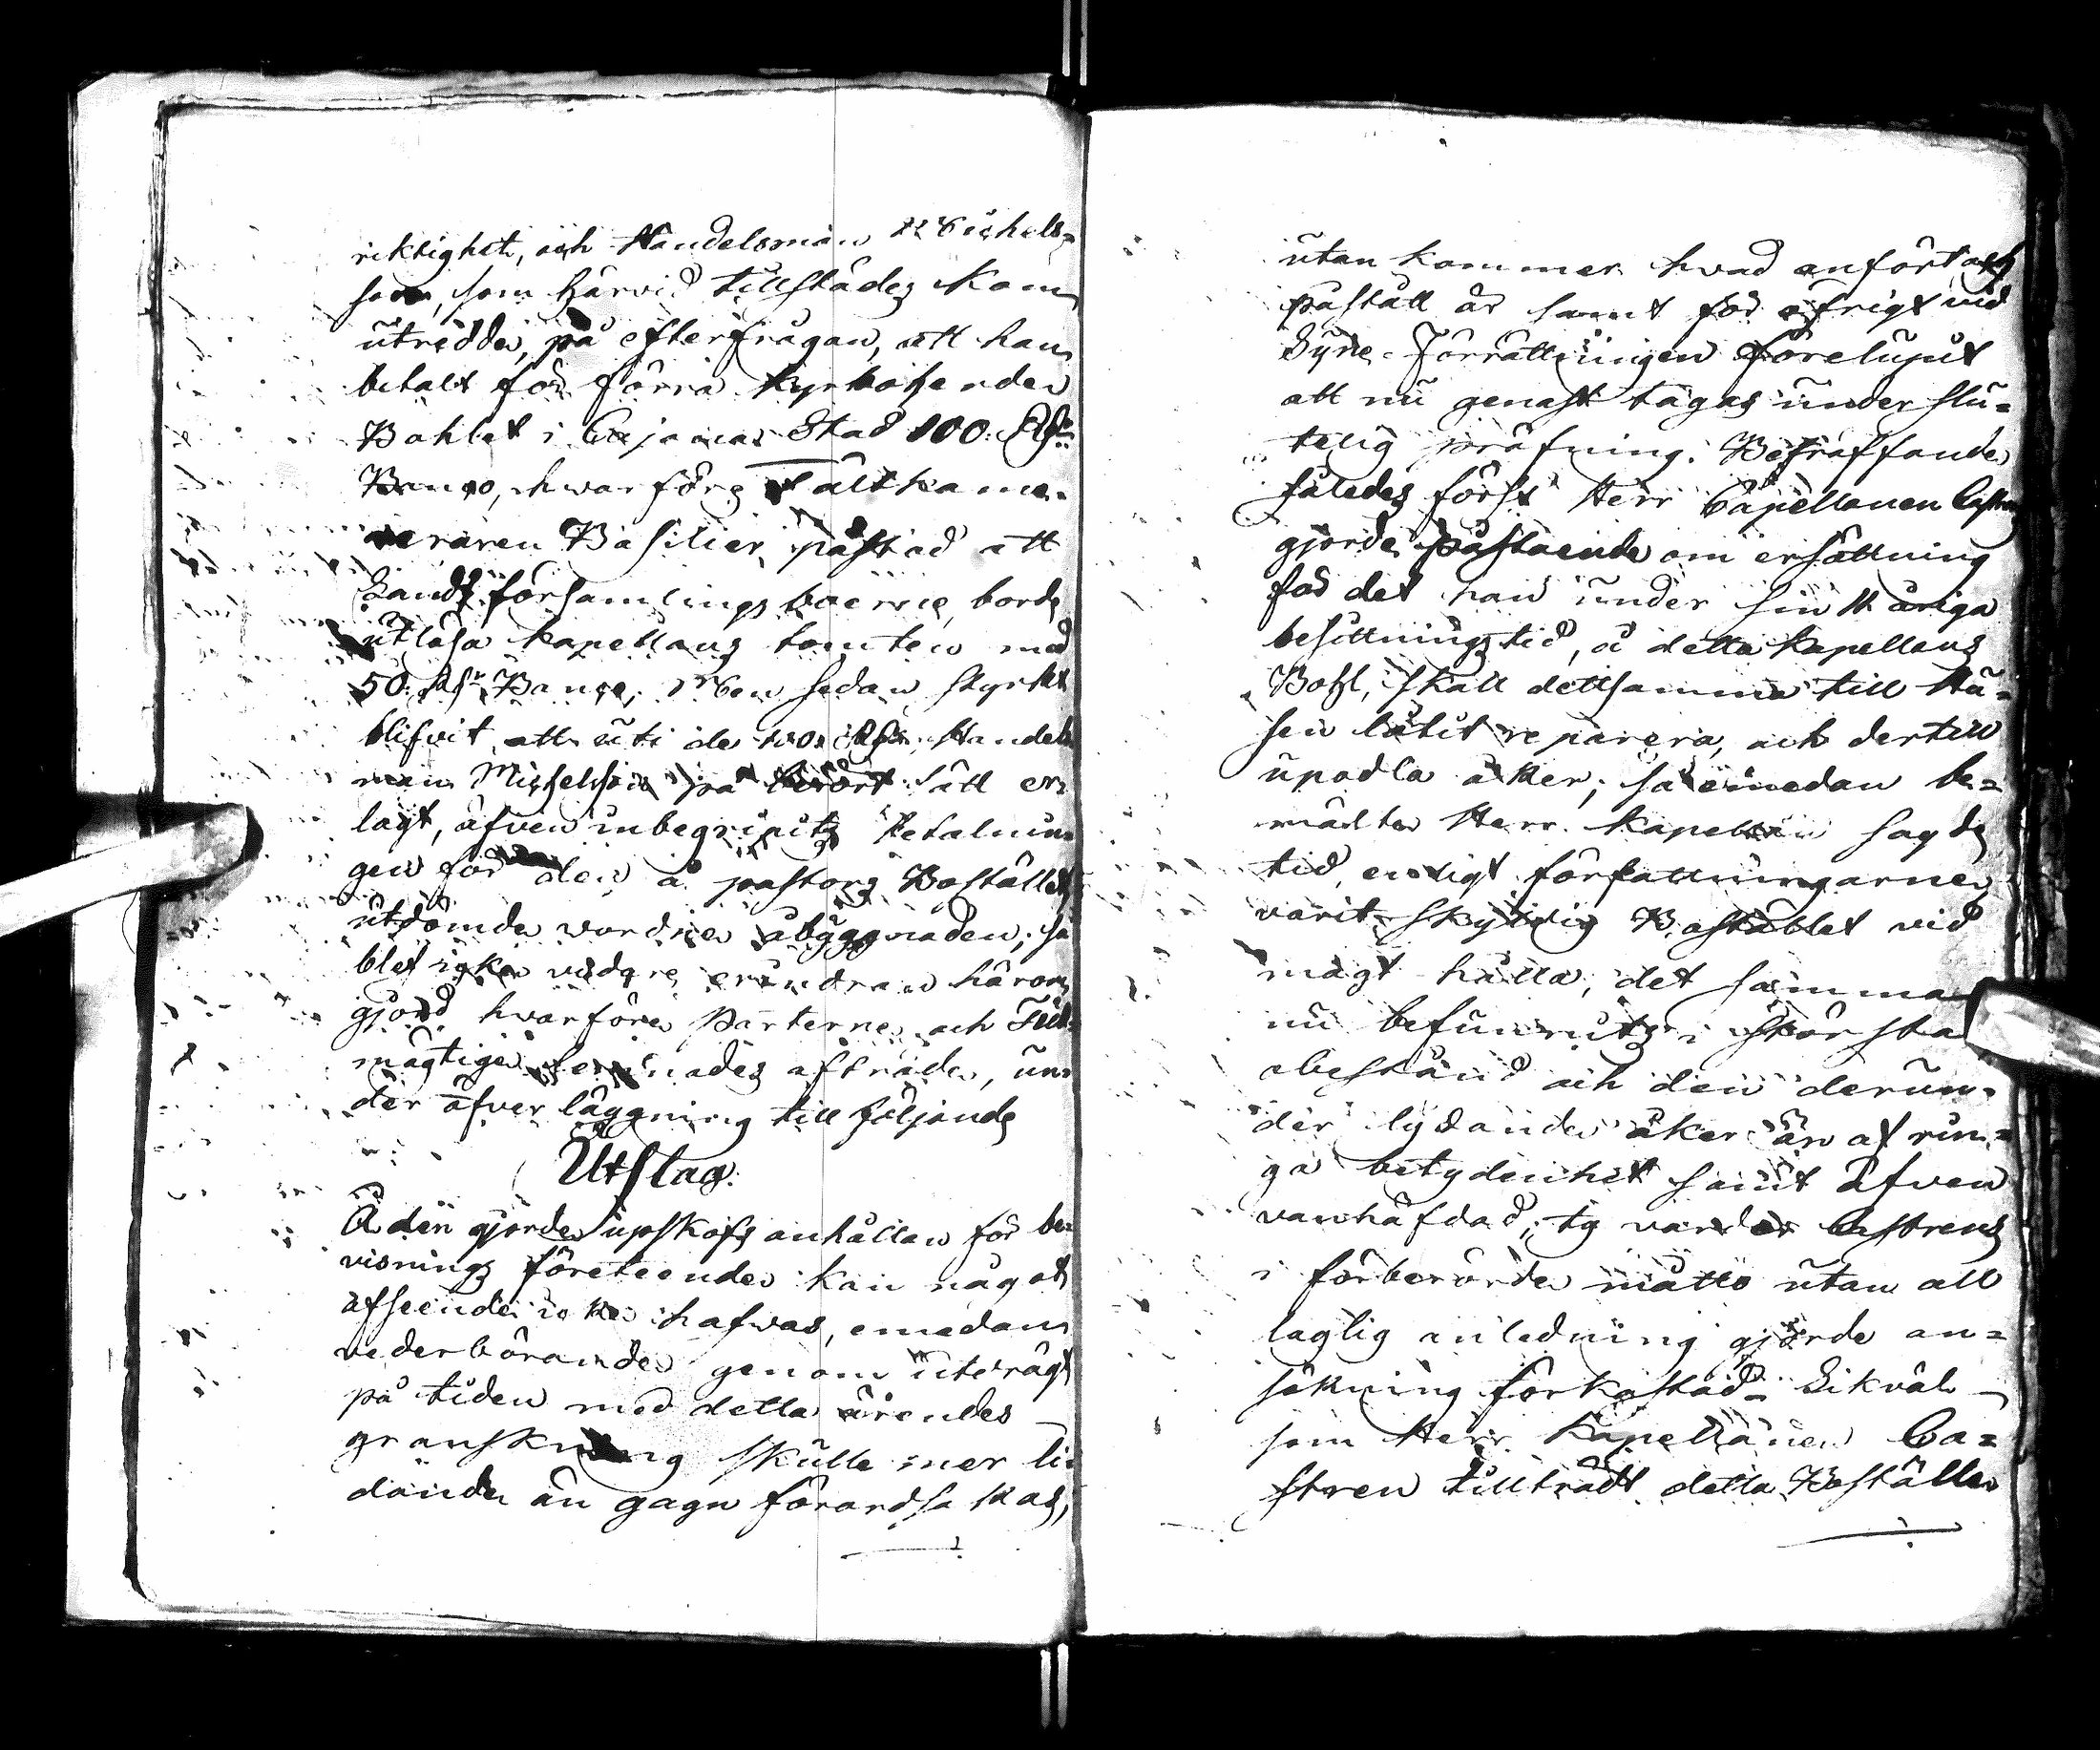 riktighet, och Handelsman Michels-
son, som härvid tillstädes kom
utredde, på efterfrågan, att han
betalt för förra kyrkoherden
Bohlet i Cajanas Stad 100: Rdr
Banco, hwarföre Fältkame-
reraren Basilier påstod att
Landsförsamlingsboerne borde
utlösa kapellans tomten med
50: Rdr Banco; Men sedan styrkt
blifvit att uti de 100: Rdr Handels
man Michelsson på berört sätt er-
lagt, äfven inbegripits betalnin-
gen för den å pastors Bostället
utdömde vordne åbyggnaden; så
blef icke vidare erindran härom
gjord hvarföre Parterne och Full-
mägtige lemnades afträde, un-
der öfverläggning till följande
Utslag:
Å den gjorde upskofs anhållan för be-
visnings företeende kan något
afseende icke hafvas, emedan
vederbörande genom utdrägt
på tiden med detta ärendes
granskning skulle mer li-
dande än gagn förordsakas,
utan kommer hvad anfört och
påstått är samt för öfrigt vid
Syne-Förrättningen förelupit
att nu genast tagas under slu-
telig pröfning. Beträffande
således först Herr Capellanen Castrens
gjorde påstående om ersättning
för det han under sin 11 åriga
besittningstid, å detta kapellans
Bohl, skall dettsamma till Hu-
sen låtit reparera, och dertill
upodla åker; så emedan be-
mälte Herr Kapellan sagde
tid, enligt författningarne
varit skyldig Bostället vid
magt hålla, det samma
nu befunnits i största
obestånd och den derun-
der lydande åker än af rin-
ga betydenhet samt äfven
vanhäfdad; ty varder Castrens
i förberörde måtto utan all
laglig anledning gjorde an-
sökning förkastad. Likväl
som Herr Kapellanen Ca-
stren tillträdt detta Boställe